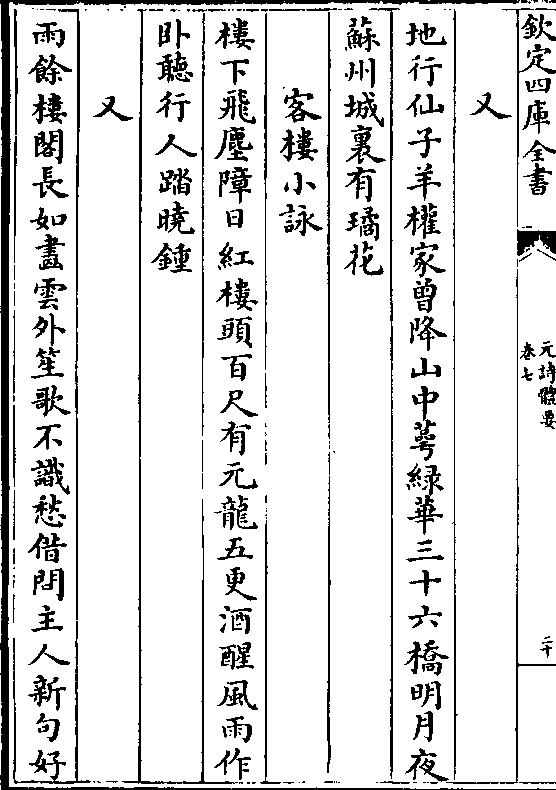 欽定四庫全書
元詩體要
卷七
二十
又
地行仙子羊權家曾降山中萼緑華三十六橋明月夜
蘇州城裏有璚花
客樓小詠
樓下飛塵障日紅樓頭百尺有元龍五更酒醒風雨作
卧聽行人踏曉鍾
又
雨餘樓閣長如畫雲外笙歌不識愁借問主人新句好